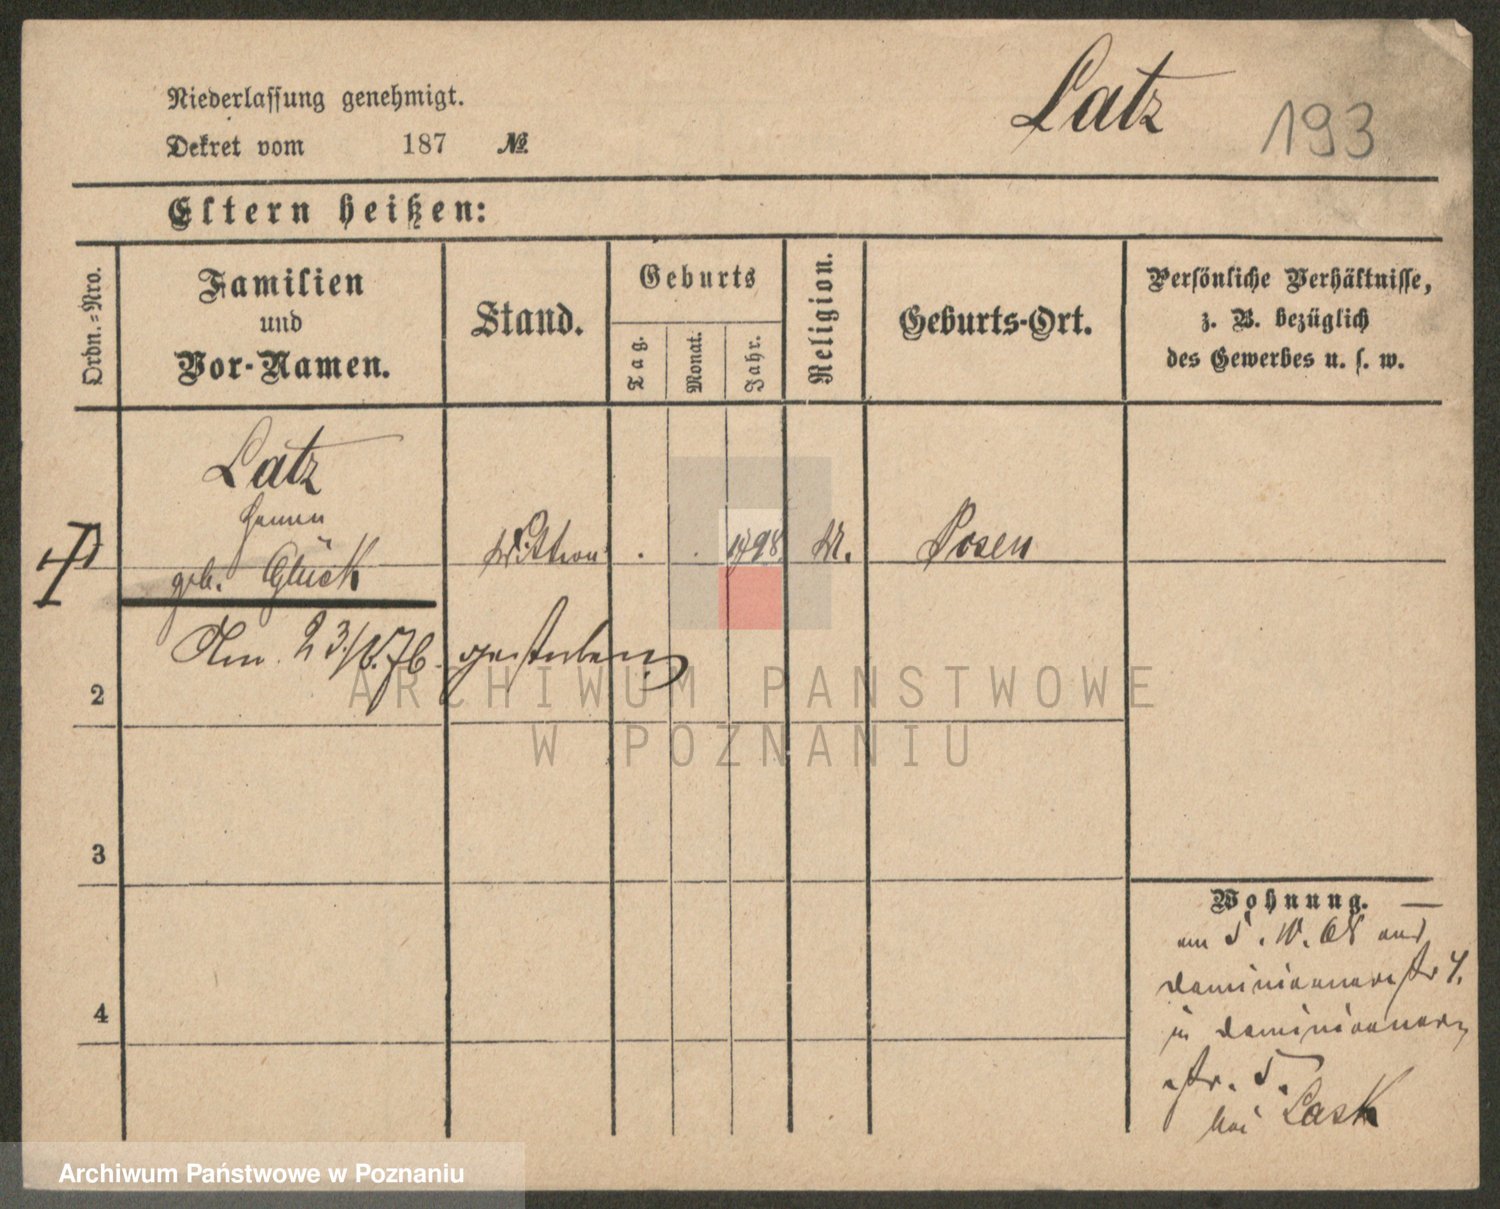 Niederlassung genehmigt.
Dekret vom 187 №.
Latz
193
Eltern heißen:
Ordn.-Nro.
Familien
und
Vor-Namen.
Stand.
Geburts
Tag.
Monat.
Jahr.
Religion.
Geburts-Ort.
Persönliche Verhältnisse,
z. B. bezüglich
des Gewerbes u. s. w.
Latz
geb. Glück
Wittwe
1798
M.
Posen
Am 23/6.76. gestorben
2
3
4
Wohnung.
am 5. 10. 68 aus
Dominicanerstr 4.
in Dominicaner
str. 5.
bei Lask
ARCHIWUM PAŃSTWOWE
W POZNANIU
Archiwum Państwowe w Poznaniu